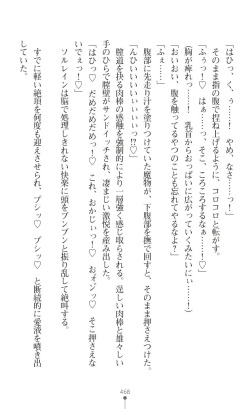 「はひっ、く、ぅ……！　やめ、なさ……っ！」
そのまま指の腹で捏ね上げるように、コロコロと転がす。
「ふぅっ！♡　はぁ……っ、そこ、ころころするなぁ……！♡」
(胸が痺れっ……！　乳首からおっぱいに広がっていくみたいにぃ……！)
「おいおい、腹を触ってるやつのことも忘れてやるなよ？」
「ふぇ……」
腹部に先走り汁を塗りつけていた魔物が、下腹部を撫で回すと、そのまま押さえつけた。
「んひぃいいいいぃぃっ!?♡」
膣道を抉る肉棒の感触を強制的により一層強く感じ取らされる。逞しい肉棒と雄々しい
手のひらで膣壁がサンドイッチされ、凄まじい激悦を産み出した。
「はひっ♡　だめだめだめっ！♡　これ、おかじぃっ！♡　おォンッ♡　そこ押さえな
いでぇっ！♡」
ソルレインは脳で処理しきれない快楽に頭をブンブンと振り乱して絶叫する。
すでに軽い絶頂を何度も迎えさせられ、プシッ♡　プシッ♡　と断続的に愛液を噴き出
していた。
468